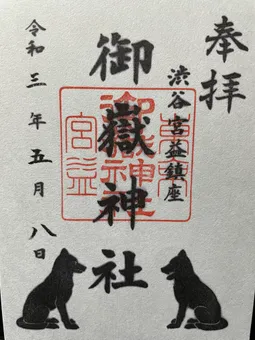 奉拝
渋谷宮益鎮座
御嶽神社
令和三年五月八日
御嶽神社
宮益